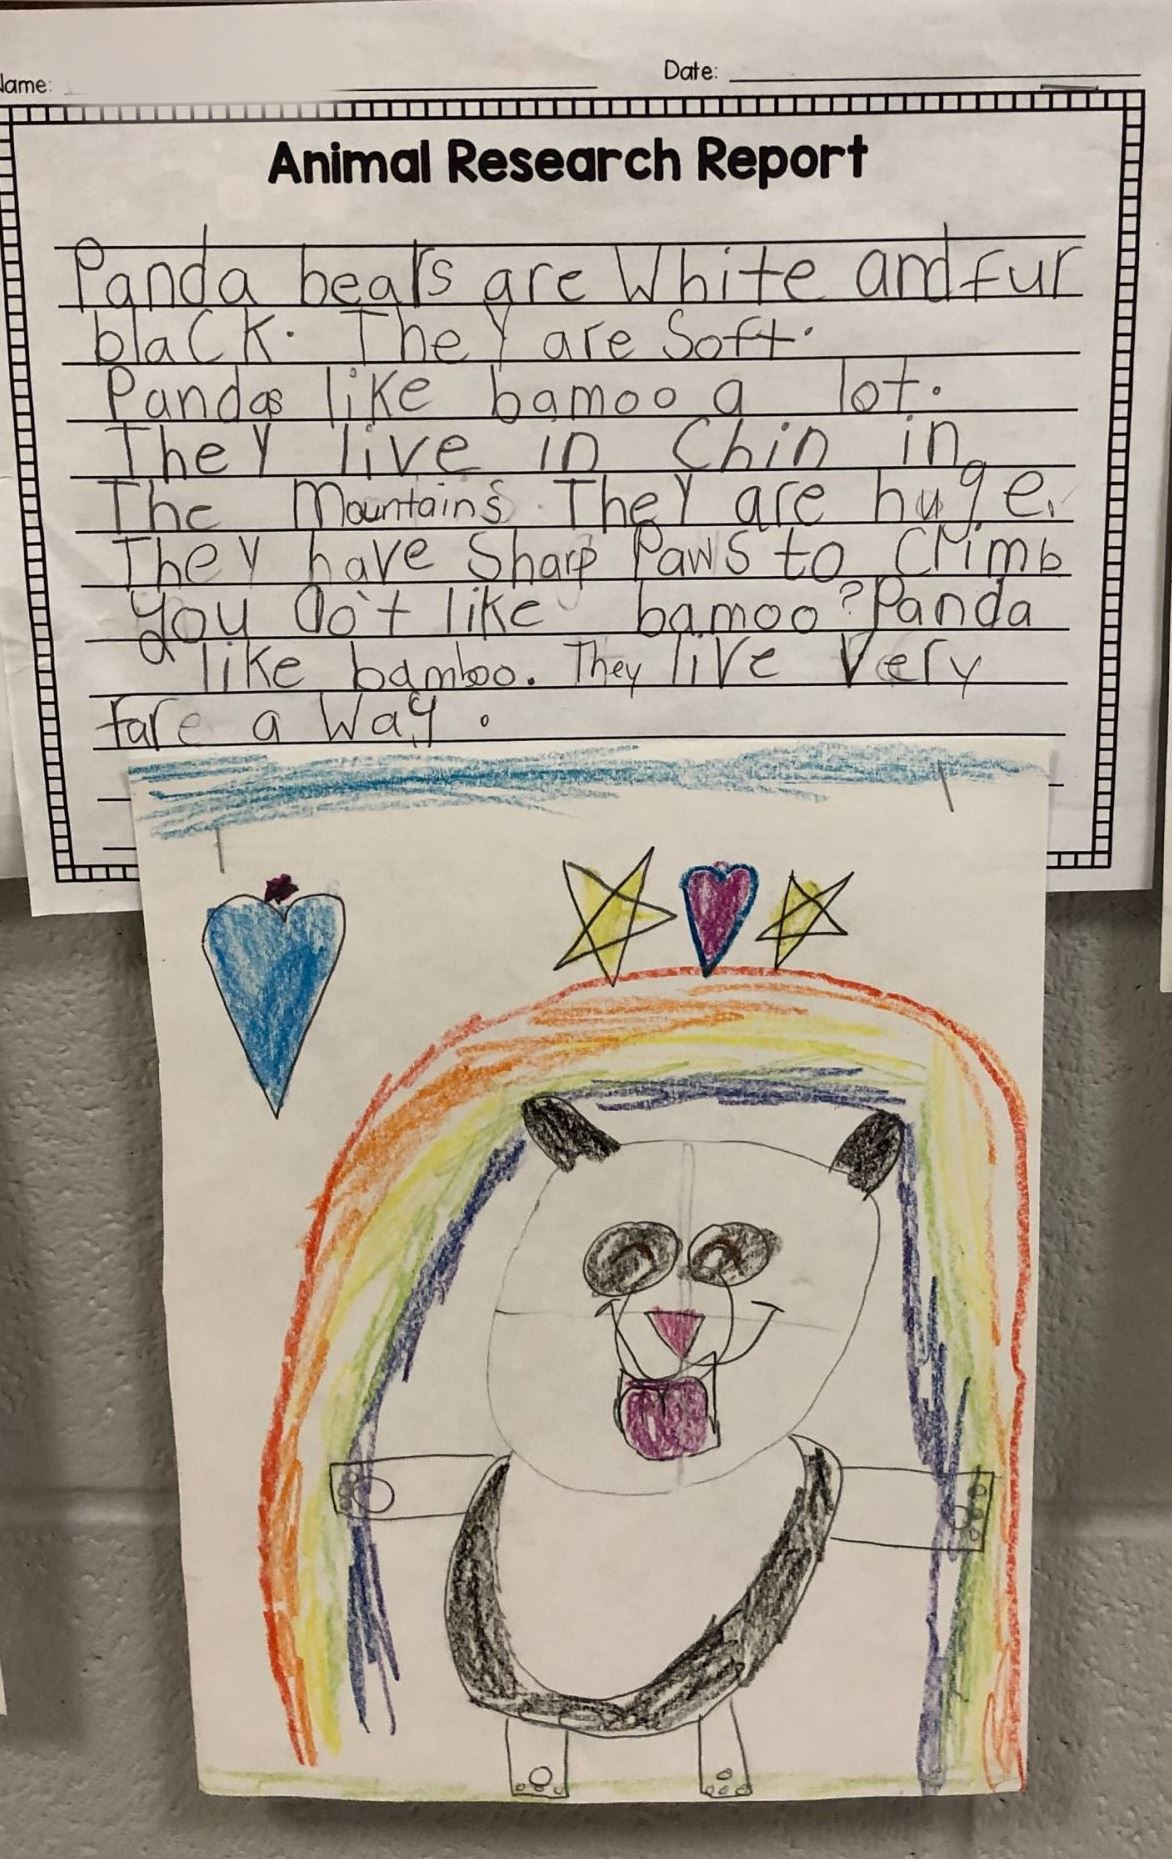 Name:
Date:
Animal Research Report
Panda bears are White and fur
black. They are Soft.
Pandas like bamoo a lot.
They live in Chin in
The Mountains. They are huge.
They have Sharp Paws to Climb
you do't like bamoo? Panda
like bamboo. They live Very
fare a Way.